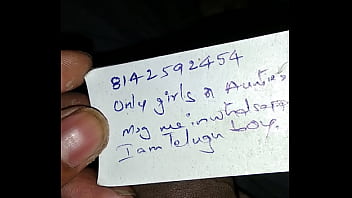 8142592454
Only girls & Auntie's
Msg me in whatsapp
I am Telugu boy.